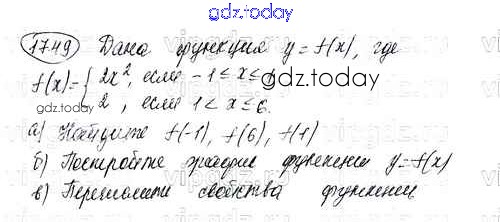 gdz.today
1749 Дана функция y=f(x), где
f(x)={ 2x², если -1≤x≤1
gdz.today
2, если 1<x≤6.
а) Найдите f(-1), f(6), f(1)
б) Постройте график функции y=f(x)
в) Перечислите свойства функции